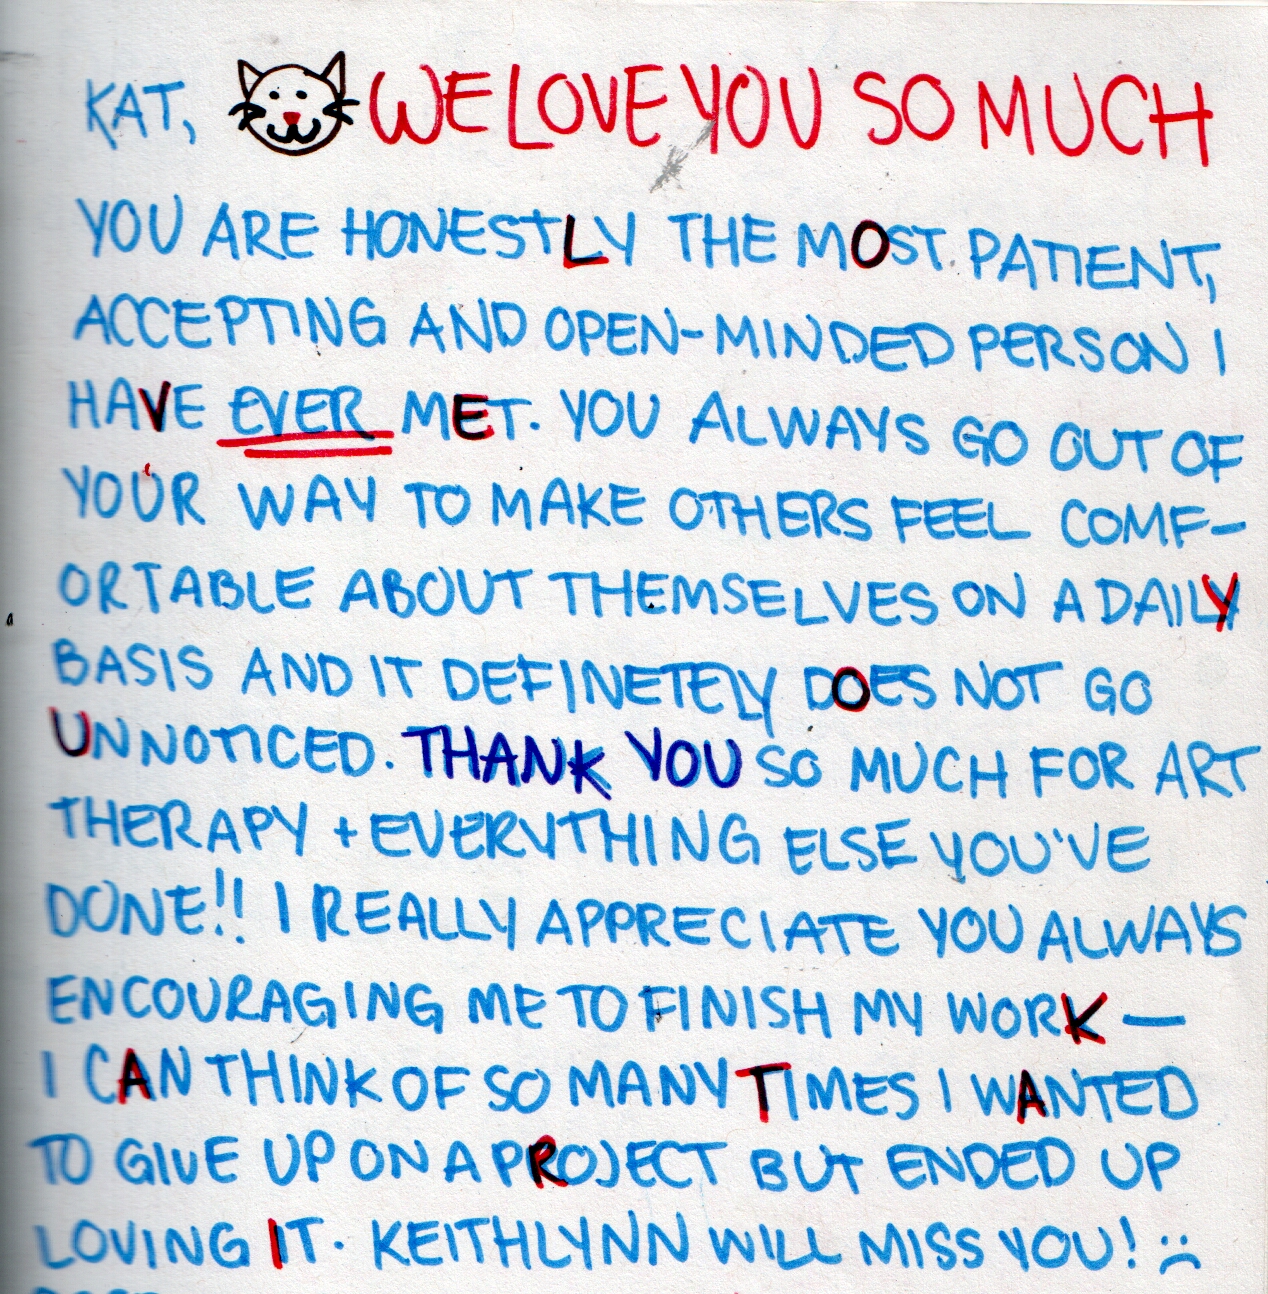 KAT, WE LOVE YOU SO MUCH
YOU ARE HONESTLY THE MOST PATIENT,
ACCEPTING AND OPEN-MINDED PERSON I
HAVE EVER MET. YOU ALWAYS GO OUT OF
YOUR WAY TO MAKE OTHERS FEEL COMF-
ORTABLE ABOUT THEMSELVES ON A DAILY
BASIS AND IT DEFINETELY DOES NOT GO
UNNOTICED. THANK YOU SO MUCH FOR ART
THERAPY + EVERYTHING ELSE YOU'VE
DONE!! I REALLY APPRECIATE YOU ALWAYS
ENCOURAGING ME TO FINISH MY WORK —
I CAN THINK OF SO MANY TIMES I WANTED
TO GIVE UP ON A PROJECT BUT ENDED UP
LOVING IT. KEITHLYNN WILL MISS YOU! :(